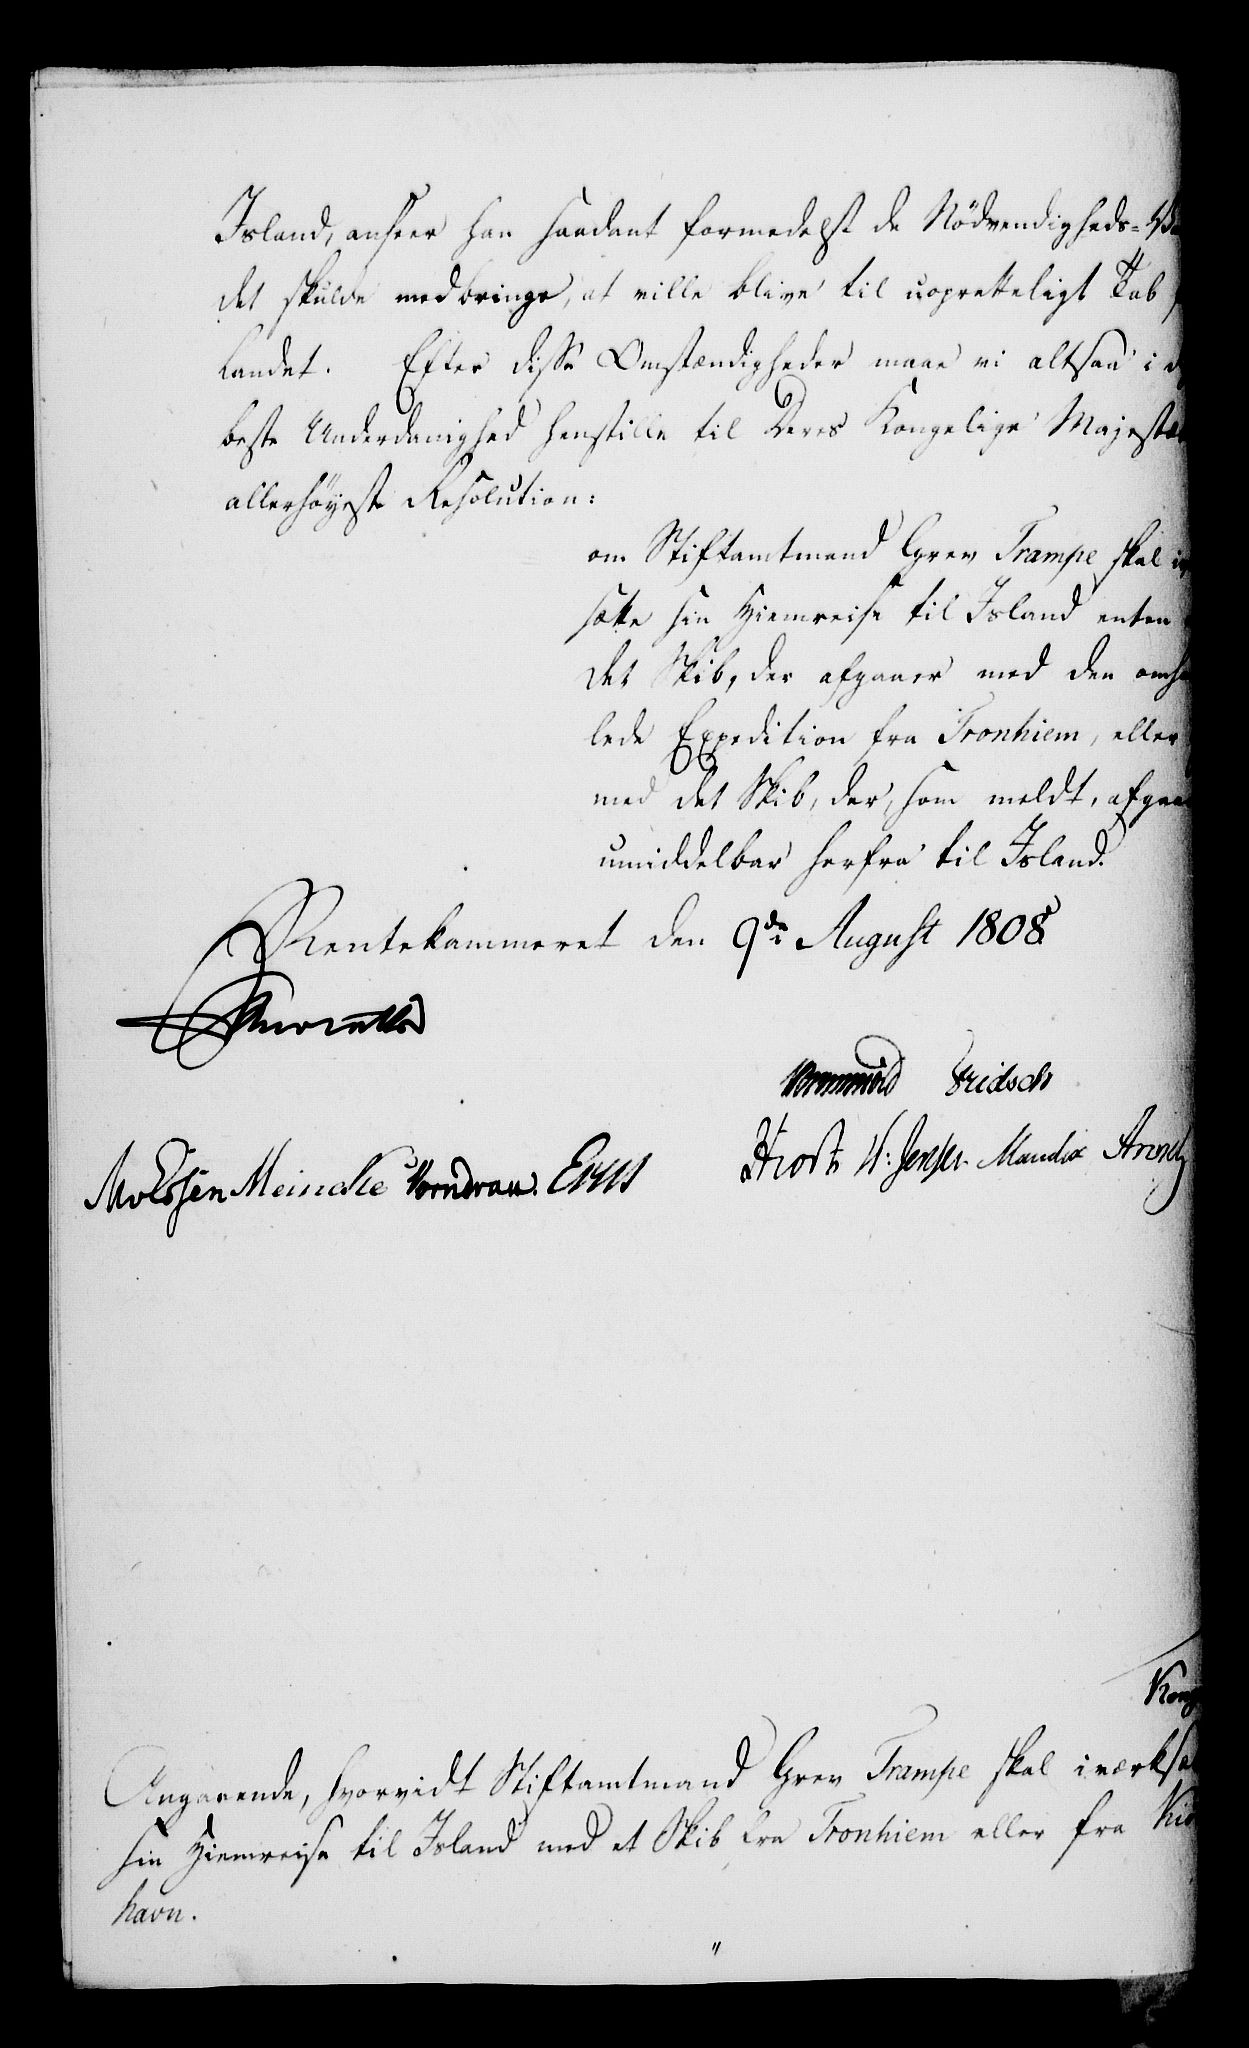 Island, anseer han saadant formedelst de Nödvendigheds-
det skulde medbringe, at ville blive til uopretteligt Tab
Landet. Efter disse Omstændigheder maae vi altsaa i
beste Underdanighed henstille til Deres Kongelige Majestæt
allerhöyeste Resolution:
om Stiftamtmand Grev Trampe skal
sætte sin Hiemreise til Island enten
det Skib, der afgaaer med den
lede Expedition fra Tronhiem, eller
med det Skib, der, som meldt, afgaa
umiddelbar herfra til Island.
Rentekammeret den 9de August 1808.
Fridsch
Meincke Vorndran
W: Jensen Mandix
Angaaende, hvorvidt Stiftamtmand Grev Trampe skal iværksæ
sin Hiemreise til Island med et Skib fra Tronhiem eller fra Kiö
havn.
"